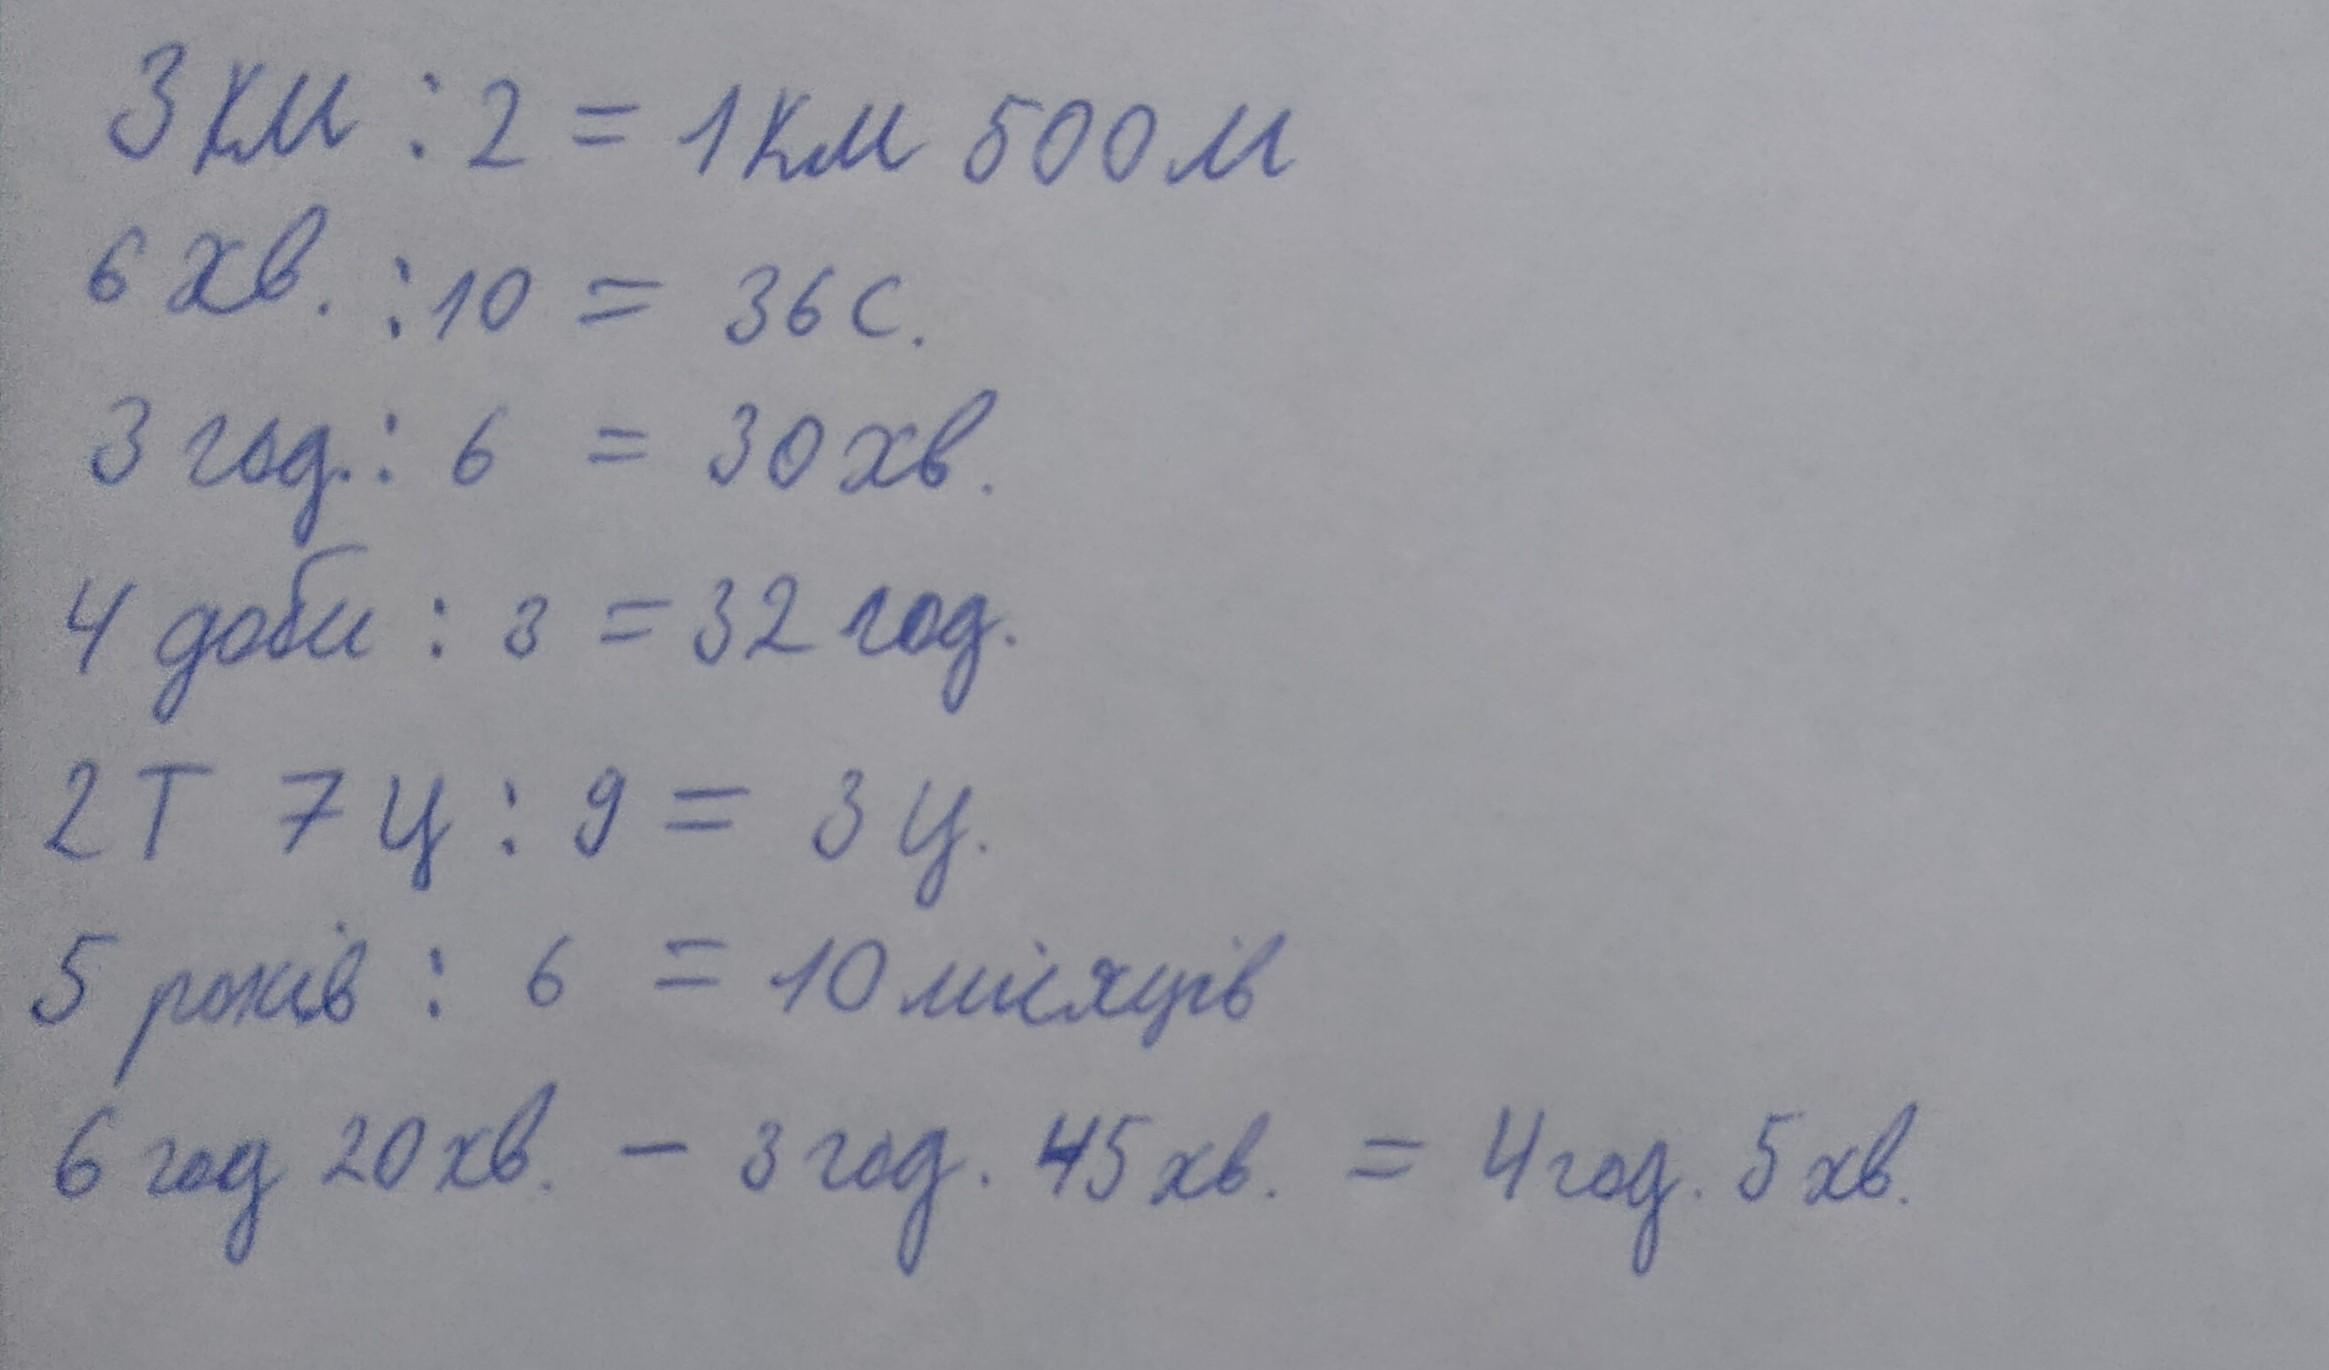 3 км : 2 = 1 км 500 м
6 хв. : 10 = 36 с.
3 год. : 6 = 30 хв.
4 доби : 3 = 32 год.
2 т 7 ц : 9 = 3 ц.
5 років : 6 = 10 місяців
6 год 20 хв. - 3 год. 45 хв. = 4 год. 5 хв.